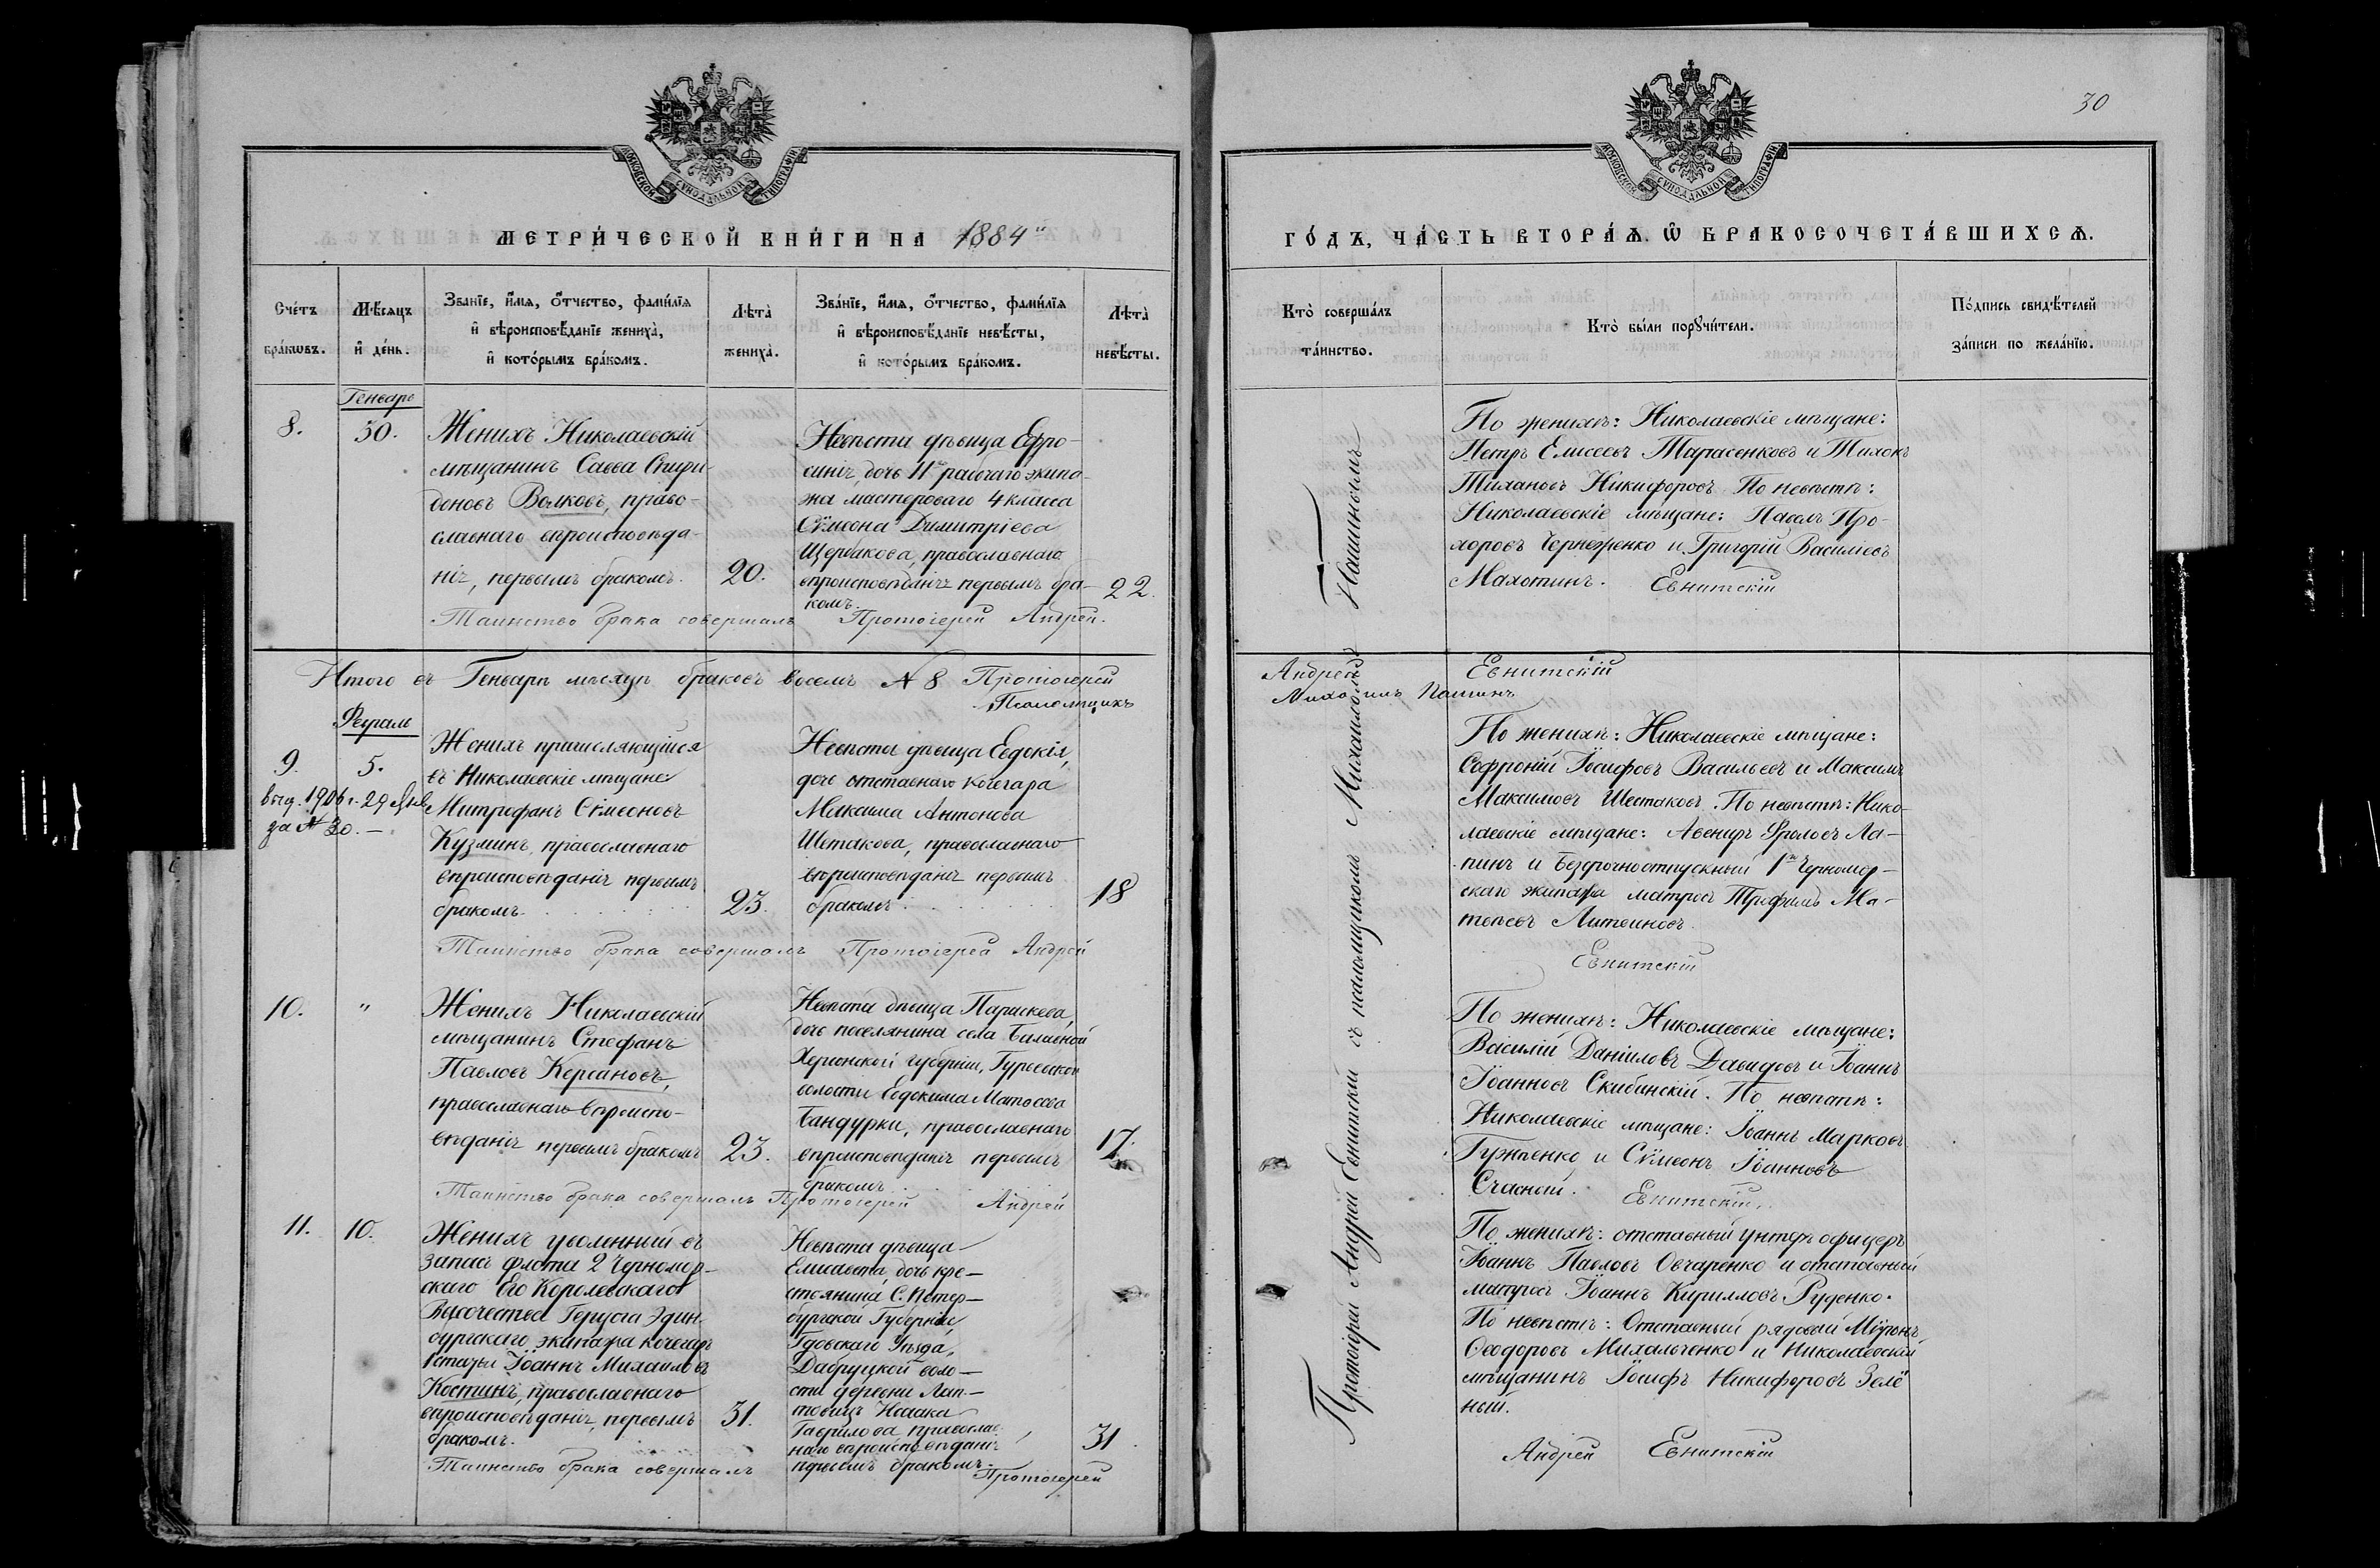 30
МОСКОВСКОЙ СѴНОДАЛЬНОЙ ТИПОГРАФІИ
МОСКОВСКОЙ СѴНОДАЛЬНОЙ ТИПОГРАФІИ
МЕТРИ́ЧЕСКОЙ КНИ́ГИ НА 1884"
ГО́ДЪ, ЧА́СТЬ ВТОРА́Ѧ. Ѽ БРАКОСОЧЕТА́ВШИХСѦ.
Сче́тъ бра́кѡвъ.
Мѣ́сяцъ и҆ де́нь.
Зва́нїе, и҆́мѧ, ѻ҆́тчество, фами́лїѧ
и҆ вѣроисповѣ́данїе жениха̀,
и҆ кото́рымъ бра́комъ.
Лѣта̀ жениха̀.
Зва́нїе, и҆́мѧ, ѻ҆́тчество, фами́лїѧ
и҆ вѣроисповѣ́данїе невѣ́сты,
и҆ кото́рымъ бра́комъ.
Лѣта̀ невѣ́сты.
Кто̀ соверша́лъ та́инство.
Кто̀ бы́ли порꙋчи́тели.
По́дпись свидѣ́телей
за́писи по жела́нїю.
Генварь
8.
30.
Женихъ Николаевскій
мѣщанинъ Савва Спири-
доновъ Волковъ, право-
славнаго вѣроисповѣда-
нія, первымъ бракомъ.
20.
Невѣста дѣвица Евфро-
синія, дочь 11го рабочаго экипа-
жа мастероваго 4 класса
Сѷмеона Димитріева
Щербакова, православнаго
вѣроисповѣданія первымъ бра-
комъ.
22.
Таинство брака совершалъ Протоіерей Андрей
По женихѣ: Николаевскіе мѣщане:
Петръ Елисеевъ Тарасенковъ и Тихонъ
Тихановъ Никифоровъ По невѣстѣ:
Николаевскіе мѣщане: Павелъ Про-
хоровъ Чернеженко и Григорій Василіевъ
Махотинъ.
Евнитскій
Протоіерей Андрей Евнитскій съ псаломщикомъ Михаиломъ Пашинымъ
Итого въ Генварѣ мѣсяцѣ браковъ восемь № 8 Протоіерей
Андрей Евнитскій
Псаломщикъ
Михаилъ Пашинъ
Февраль
9.
5.
выд. 1906 г. 29
за № 30.—
Женихъ причисляющійся
въ Николаевскіе мѣщане
Митрофанъ Сѷмеоновъ
Кузминъ, православнаго
вѣроисповѣданія первымъ
бракомъ
23.
Невѣста дѣвица Евдокія,
дочь отставнаго кочегара
Максима Антонова
Шестакова, православнаго
вѣроисповѣданія первымъ
бракомъ
18
Таинство брака совершалъ Протоіерей Андрей
По женихѣ: Николаевскіе мѣщане:
Софроній Іосифовъ Васильевъ и Максимъ
Максимовъ Шестаковъ. По невѣстѣ: Нико-
лаевскіе мѣщане: Авениръ Фроловъ Ла-
пинъ и безсрочноотпускный 1го Черномор-
скаго экипажа матросъ Трофимъ Ма-
твѣевъ Литвиновъ.
Евнитскій
10.
"
Женихъ Николаевскій
мѣщанинъ Стефанъ
Павловъ Керсановъ,
православнаго вѣроиспо-
вѣданія первымъ бракомъ
23.
Невѣста дѣвица Параскева,
дочь поселянина села Балавной
Херсонской губерніи, Гурьевской
волости Евдокима Матвѣева
Бандурки, православнаго
вѣроисповѣданія первымъ
бракомъ
17.
Таинство брака совершалъ Протоіерей Андрей
По женихѣ: Николаевскіе мѣщане:
Василій Даніиловъ Давидовъ и Іоаннъ
Іоанновъ Скибинскій. По невѣстѣ:
Николаевскіе мѣщане: Іоаннъ Марковъ
Гужвенко и Сѷмеонъ Іоанновъ
Счасный.
Евнитскій.
11.
10.
Женихъ уволенный въ
запасъ флота 2 Черномор-
скаго Его Королевскаго
Высочества Герцога Эдин-
бургскаго экипажа кочегаръ
1 статьи Іоаннъ Михаиловъ
Костинъ, православнаго
вѣроисповѣданія, первымъ
бракомъ.
31.
Невѣста дѣвица
Елисавета, дочь кре-
стьянина С. Петер-
бургской Губерніи,
Гдовскаго Уѣзда,
Дабруцкой воло-
сти деревни Лап-
товицъ Исаака
Гаврилова, православ-
наго вѣроисповѣданія
первымъ бракомъ.
31.
Таинство брака совершалъ Протоіерей
По женихѣ: отставный унтеръ офицеръ
Іоаннъ Павловъ Овчаренко и отставный
матросъ Іоаннъ Кирилловъ Руденко.
По невѣстѣ: Отставный рядовый Мѵронъ
Ѳеодоровъ Михальченко и Николаевскій
мѣщанинъ Іосифъ Никифоровъ Зелё
ный.
Андрей Евнитскій